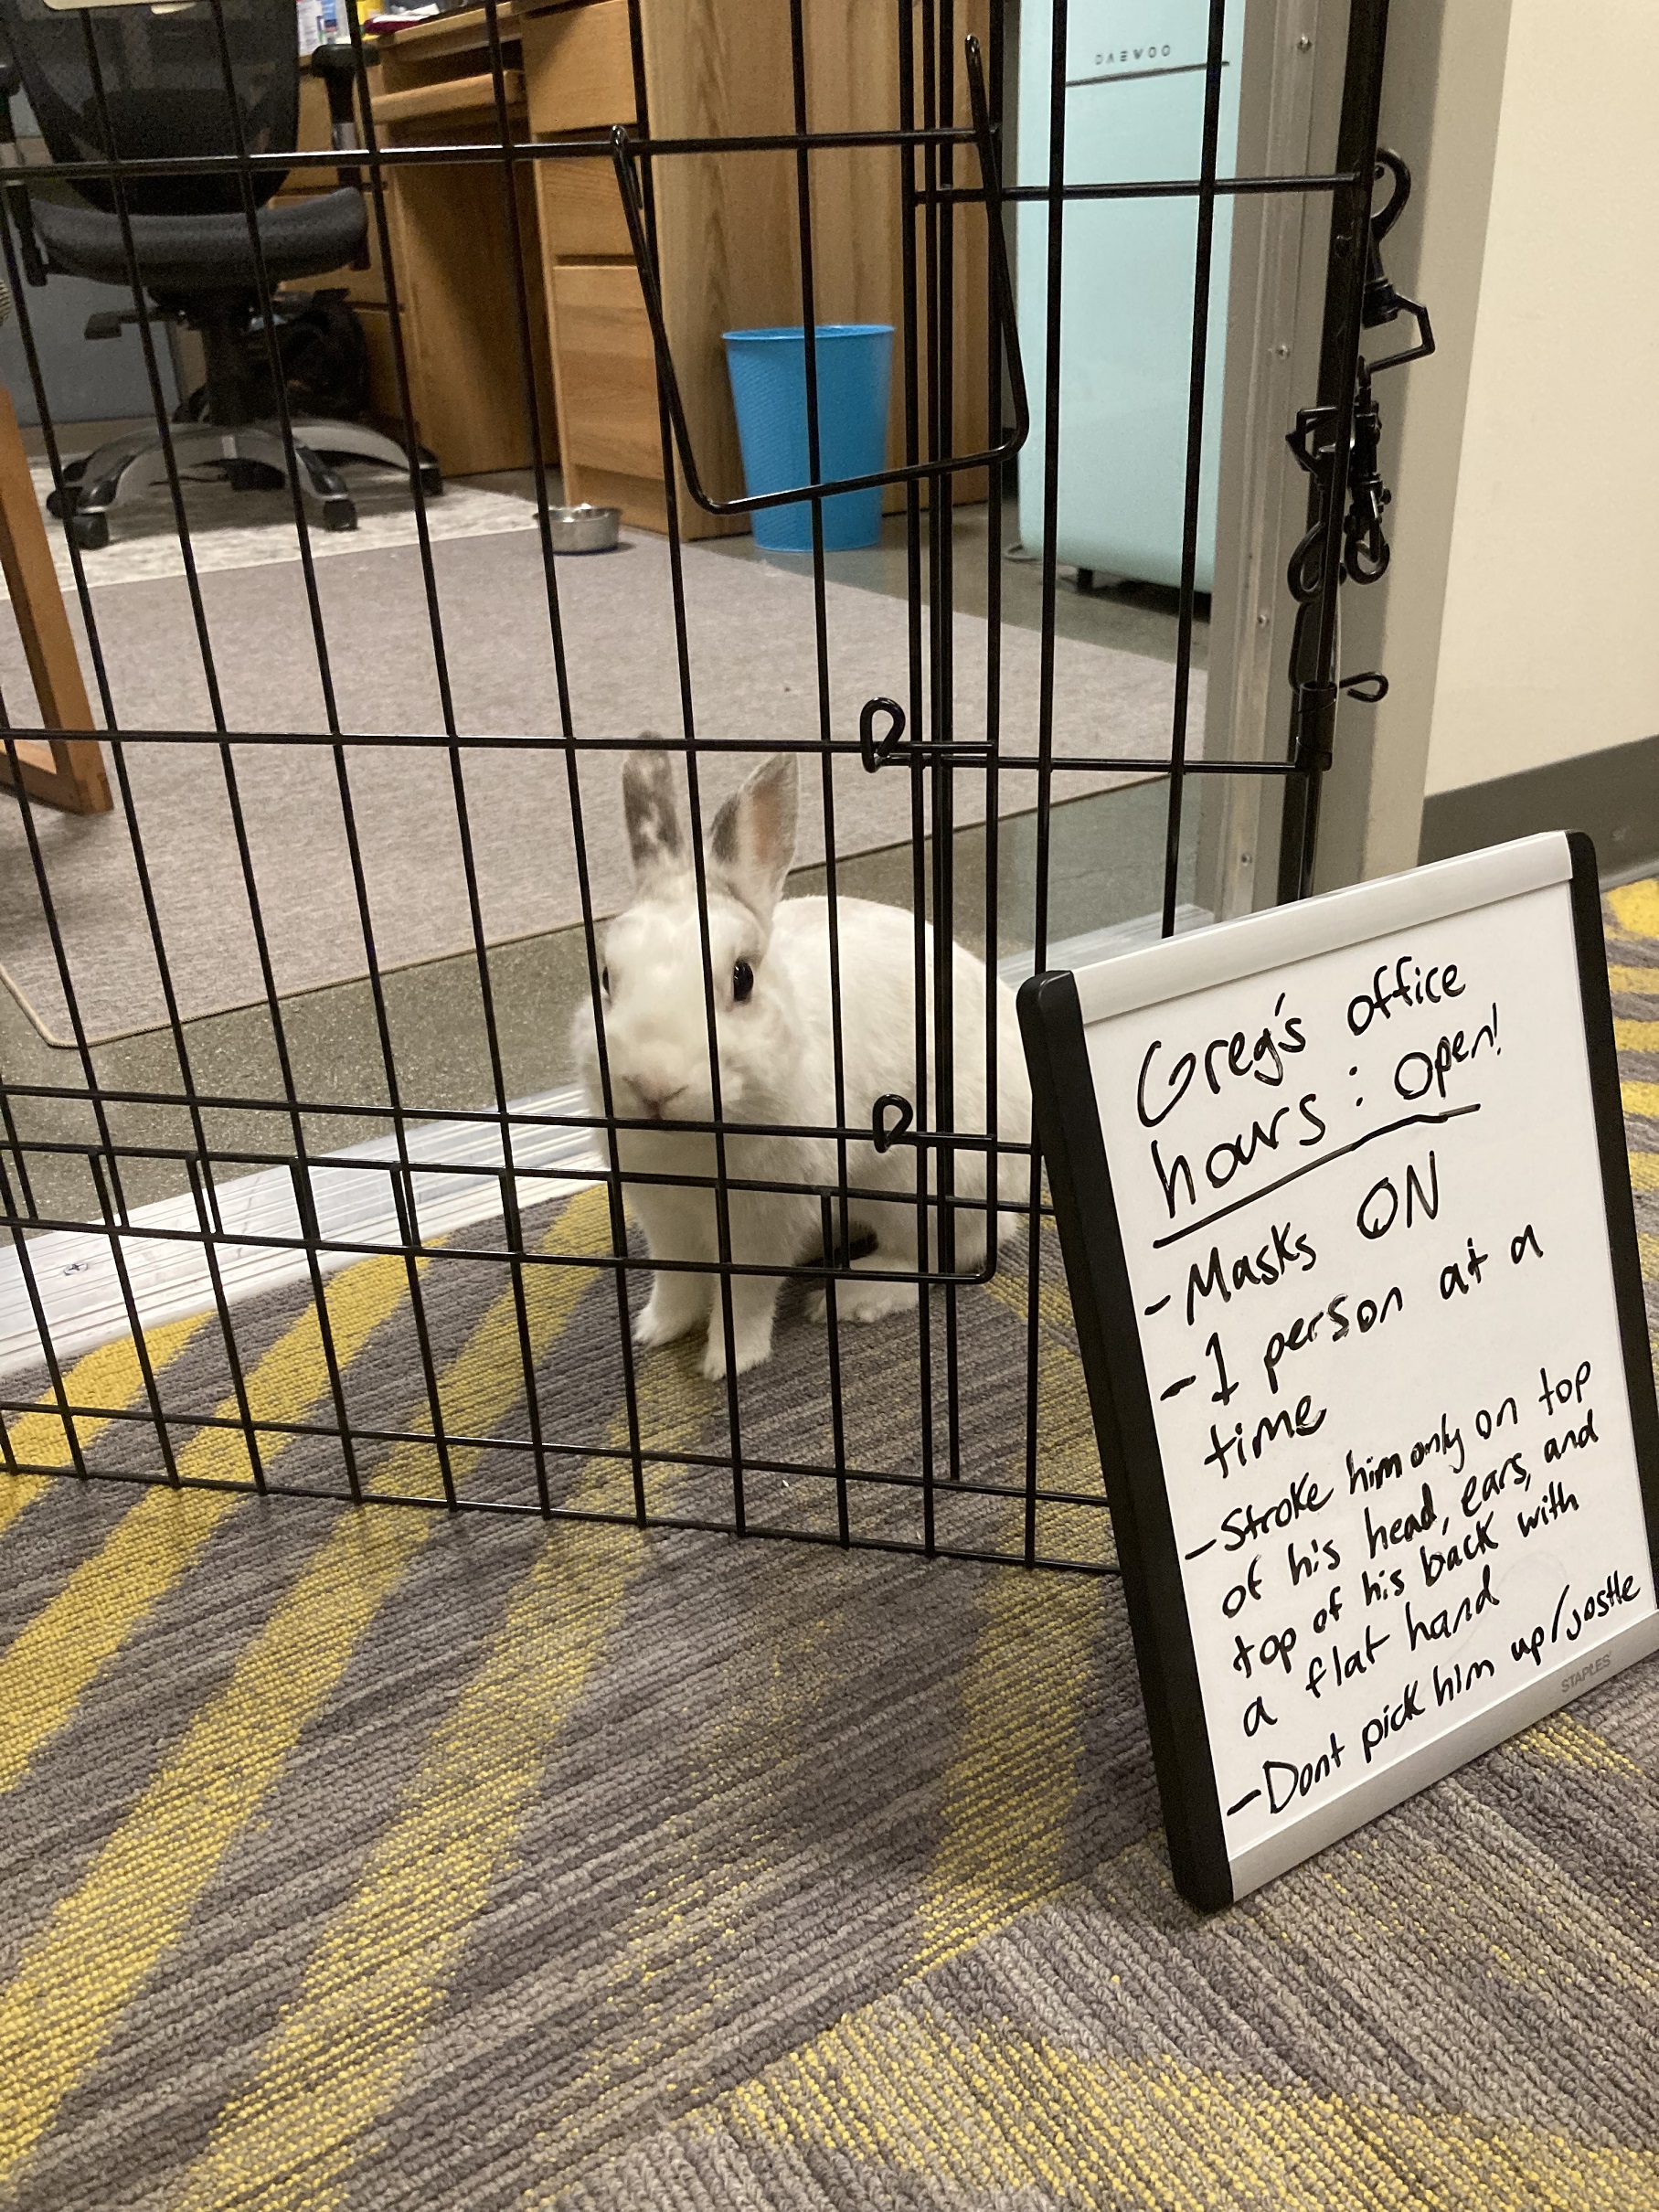 DAEWOO
Greg's office
hours: Open!
- Masks ON
- 1 person at a
time
- Stroke him only on top
of his head, ears, and
top of his back with
a flat hand
- Dont pick him up/jostle
STAPLES